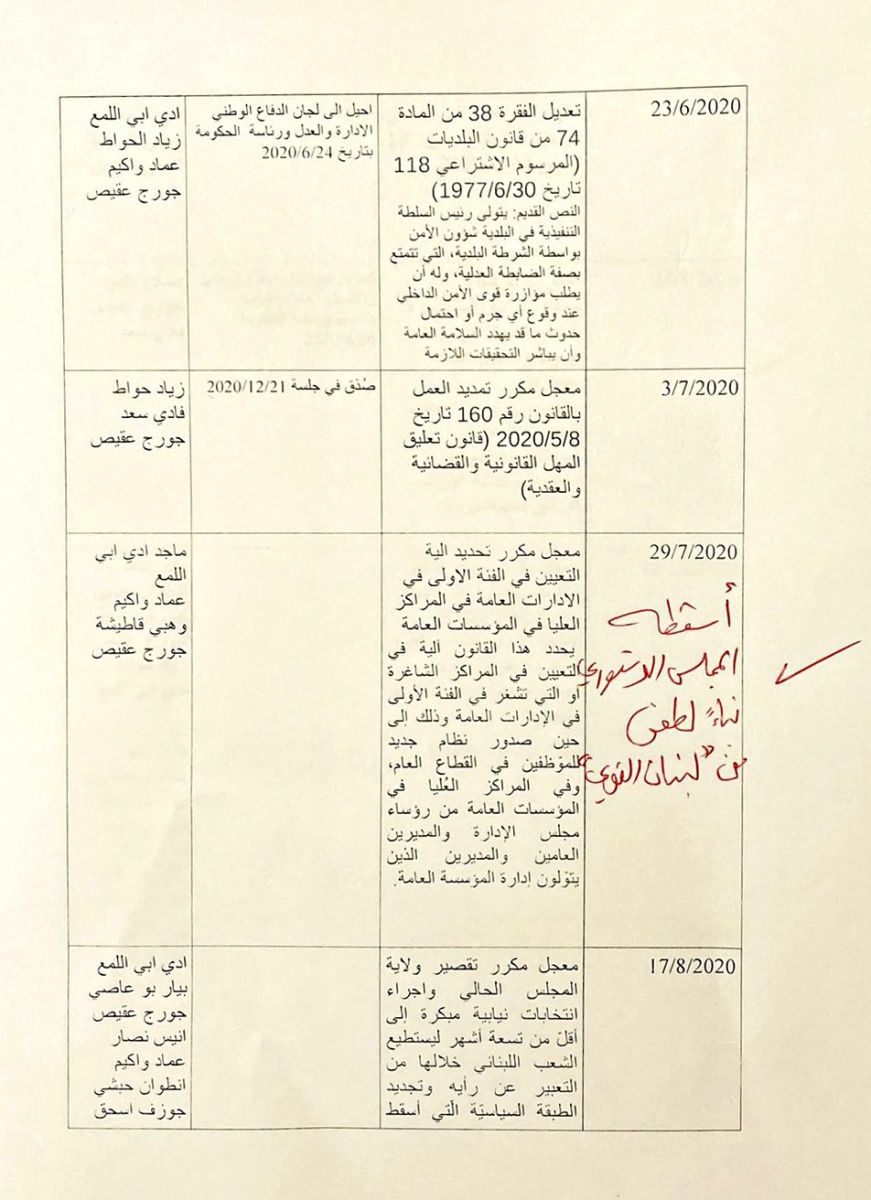 23/6/2020
تعديل الفقرة 38 من المادة
74 من قانون البلديات
(المرسوم الاشتراعي 118
تاريخ 1977/6/30)
النص القديم: يتولى رئيس السلطة
التنفيذية في البلدية شؤون الأمن
بواسطة الشرطة البلدية، التي تتمتع
بصفة الضابطة العدلية، وله أن
يطلب مؤازرة قوى الأمن الداخلي
عند وقوع أي جرم أو احتمال
حدوث ما قد يهدد السلامة العامة
وأن يباشر التحقيقات اللازمة
احيل الى لجان الدفاع الوطني
الادارة والعدل ورئاسة الحكومة
بتاريخ 2020/6/24
ادي ابي اللمع
زياد الحواط
عماد واكيم
جورج عقيص
3/7/2020
معجل مكرر تمديد العمل
بالقانون رقم 160 تاريخ
2020/5/8 (قانون تعليق
المهل القانونية والقضائية
والعقدية)
صُدّق في جلسة 2020/12/21
زياد حواط
فادي سعد
جورج عقيص
29/7/2020
أسقطه
المجلس الدستوري
بناءً لطعن
من "لبنان القوي"
معجل مكرر تحديد الية
التعيين في الفئة الاولى في
الادارات العامة في المراكز
العليا في المؤسسات العامة
يحدد هذا القانون آلية في
التعيين في المراكز الشاغرة
او التي تشغر في الفئة الأولى
في الإدارات العامة وذلك إلى
حين صدور نظام جديد
للموّظفين في القطاع العام،
وفي المراكز العُليا في
المؤسسات العامة من رؤساء
مجلس الإدارة والمديرين
العامين والمديرين الذين
يتوّلون إدارة المؤسسة العامة.
ماجد ادي ابي
اللمع
عماد واكيم
وهبي قاطيشة
جورج عقيص
17/8/2020
معجل مكرر تقصير ولاية
المجلس الحالي واجراء
انتخابات نيابية مبكرة إلى
أقلّ من تسعة أشهر ليستطيع
الشعب اللبناني خلالها من
التعبير عن رأيه وتجديد
الطبقة السياسيّة الّتي أسقط
ادي ابي اللمع
بيار بو عاصي
جورج عقيص
انيس نصار
عماد واكيم
انطوان حبشي
جوزف اسحق